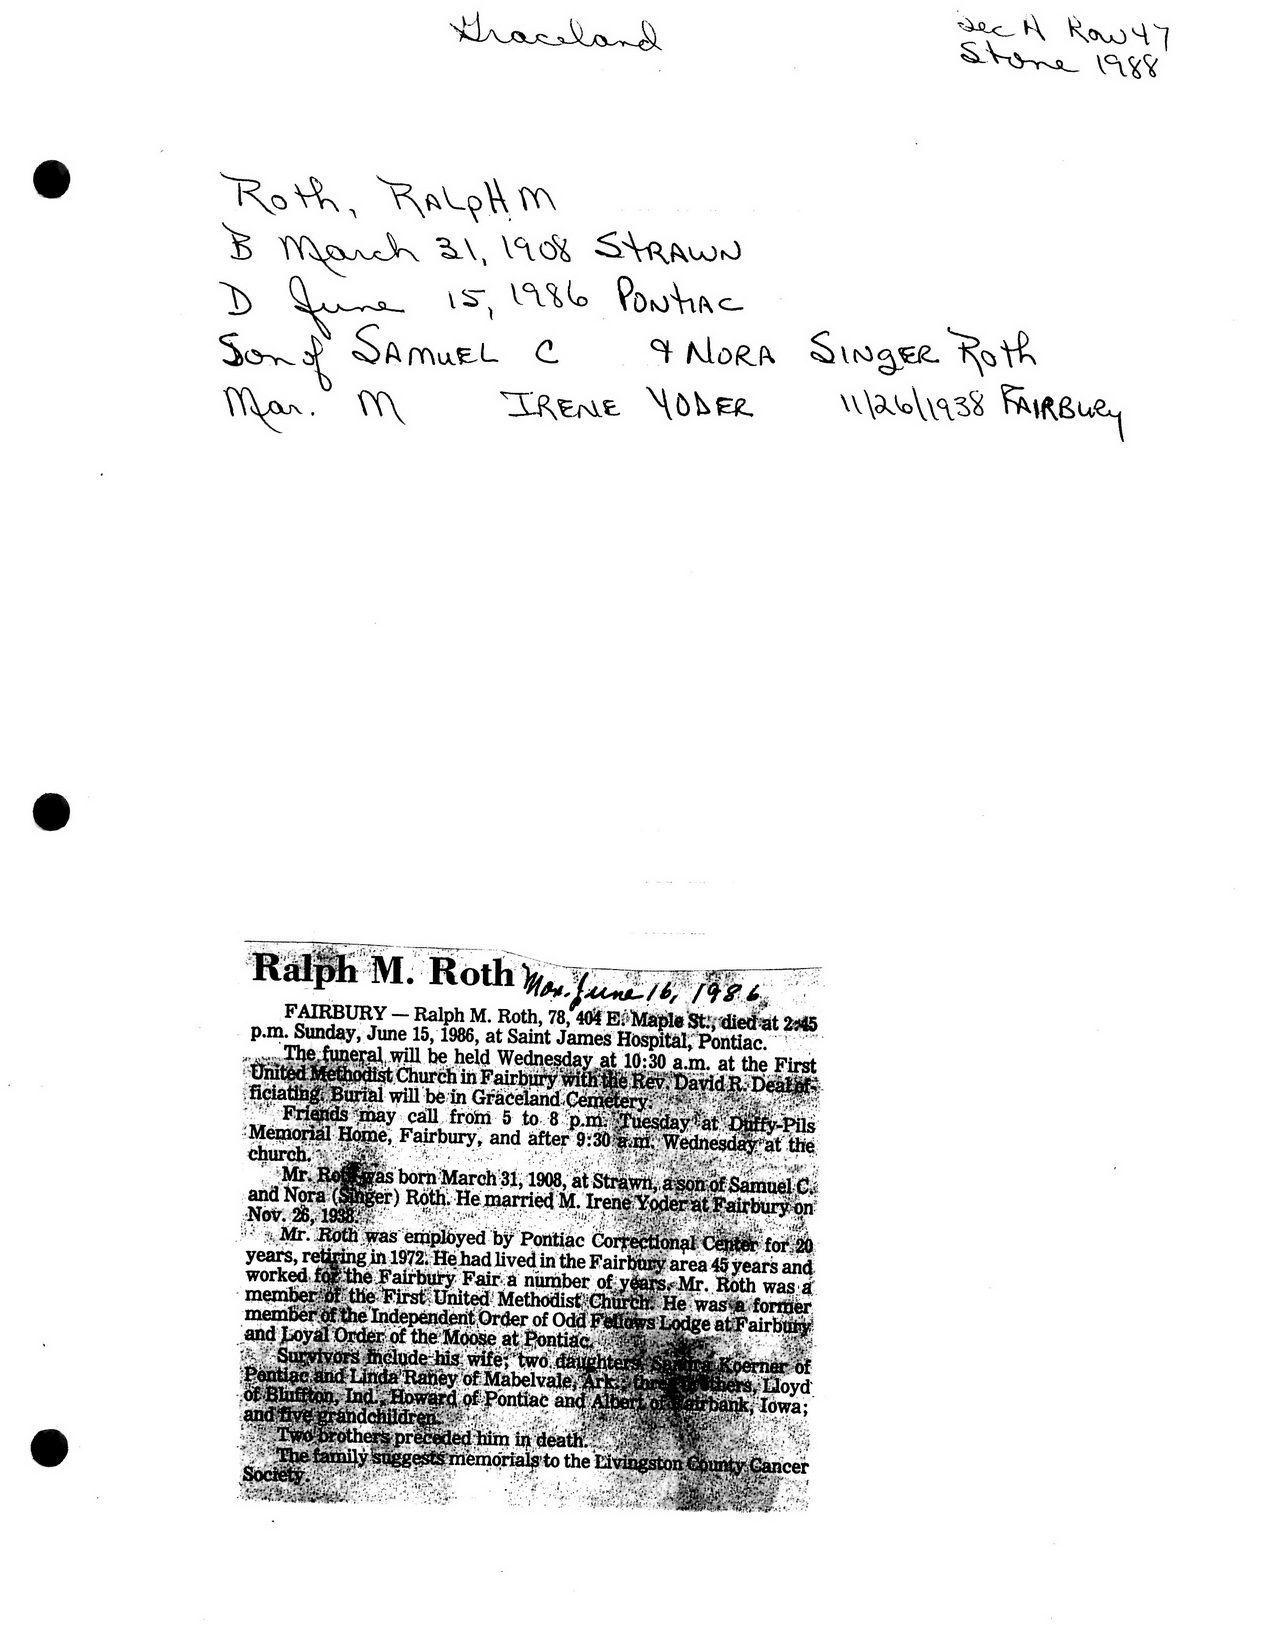 Graceland
Sec A Row 47
Stone 1988
Roth, RALPH M
B March 31, 1908 STRAWN
D June 15, 1986 PONTIAC
Son of SAMUEL C & NORA SINGER Roth
Mar. M IRENE YODER 11/26/1938 FAIRBURY
Ralph M. Roth Mon. June 16, 1986
FAIRBURY — Ralph M. Roth, 78, 404 E. Maple St., died at 2:45
p.m. Sunday, June 15, 1986, at Saint James Hospital, Pontiac.
The funeral will be held Wednesday at 10:30 a.m. at the First
United Methodist Church in Fairbury with the Rev. David R. Deal of-
ficiating. Burial will be in Graceland Cemetery.
Friends may call from 5 to 8 p.m. Tuesday at Duffy-Pils
Memorial Home, Fairbury, and after 9:30 a.m. Wednesday at the
church.
Mr. Roth was born March 31, 1908, at Strawn, a son of Samuel C.
and Nora (Singer) Roth. He married M. Irene Yoder at Fairbury on
Nov. 26, 1938.
Mr. Roth was employed by Pontiac Correctional Center for 20
years, retiring in 1972. He had lived in the Fairbury area 45 years and
worked for the Fairbury Fair a number of years. Mr. Roth was a
member of the First United Methodist Church. He was a former
member of the Independent Order of Odd Fellows Lodge at Fairbury
and Loyal Order of the Moose at Pontiac.
Survivors include his wife; two daughters, Sandra Koerner of
Pontiac and Linda Raney of Mabelvale, Ark.; three brothers, Lloyd
of Bluffton, Ind., Howard of Pontiac and Albert of Fairbank, Iowa;
and five grandchildren.
Two brothers preceded him in death.
The family suggests memorials to the Livingston County Cancer
Society.